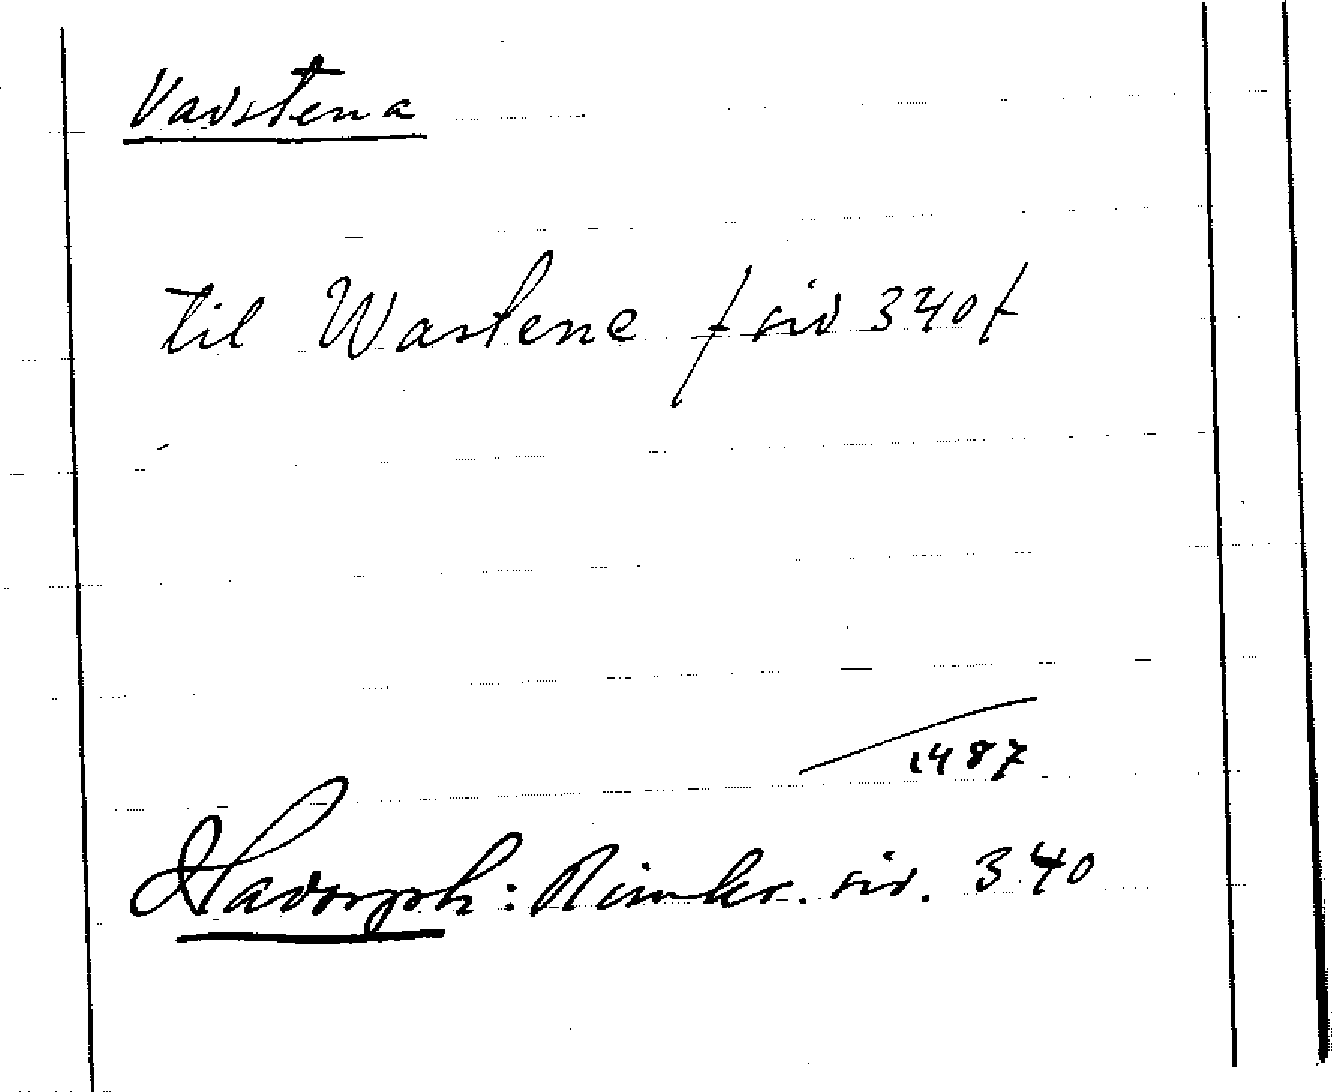 Vadstena
til Wastene /sid 340/
1487
Hadorph: Rimkr. sid. 340